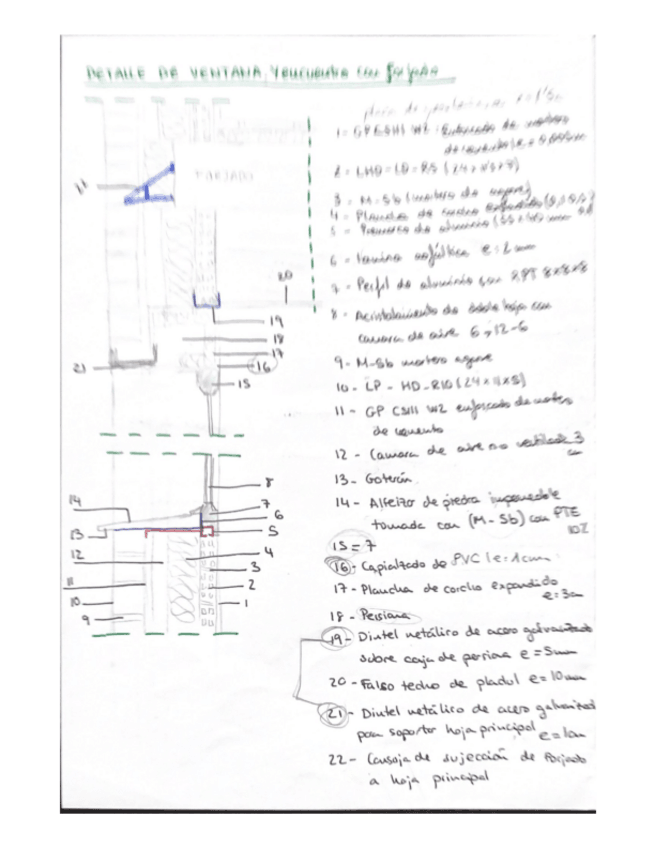 DETALLE DE VENTANA, Y encuentro con forjado
1= GP CSIII W2
2 = LHD = LD = RS (24 x 11 x 7)
FORJADO
22
3 = M-5b (mortero de agarre)
4 = Plancha de corcho expandido
5 = Premarco de aluminio
6 = lamina asfáltica e = 2 mm
20
7 = Perfil de aluminio con RPT 8x8x8
8 - Acristalamiento de doble hoja con
19
camara de aire 6-12-6
18
17
9 - M-5b mortero agarre
21
16
15
10 - LP - HD - R10 (24 x 11 x 5)
11 - GP CSIII W2 enfoscado de mortero
de cemento
12 - Camara de aire no ventilada 3
cm
8
13 - Goterón
14
7
14 - Alfeizo de piedra impermeable
6
tomada con (M-5b) con PTE
13
5
10%
12
4
15 = 7
3
16 - Capialzado de PVC (e=1cm
11
2
17 - Plancha de corcho expandido
10
1
e=3cm
9
18 - Persiana
19 - Dintel metálico de acero galvanizado
sobre caja de persiana e = 5mm
20 - Falso techo de pladul e = 10mm
21 - Dintel metálico de acero galvanizad
para soportar hoja principal e = 1cm
22 - Consoja de sujección de forjado
a hoja principal